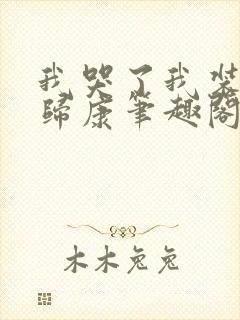 我哭了我装
歸康筆趣閣
木木兔兔